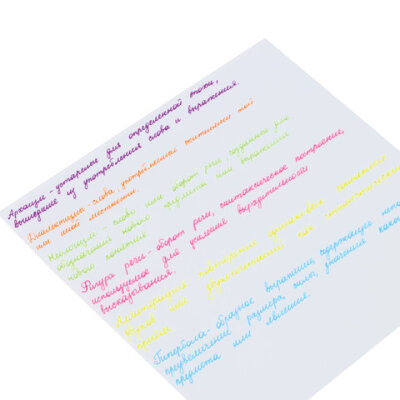 Архаизм - устаревшие для определенной эпохи,
вышедшие из употребления слова и выражения.
Диалектизм - слова, употребляемые жителями той
или иной местности.
Неологизм - слово или оборот речи, созданный для
обозначения нового предмета или выражения
нового понятия
Фигура речи - оборот речи, синтаксическое построение,
используемое для усиления выразительности
высказывания.
Аллитерация - повторение одинаковых согласных
звуков или
приём
Гипербола - образное выражение, содержащее
преувеличение размера, силы, значения
предмета или явления.